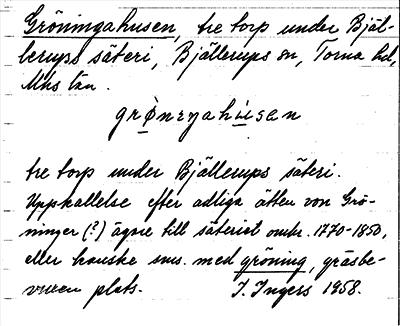 Gröningahusen, tre torp under Bjäl-
lerups säteri, Bjällerups sn, Torna hd,
Mhs län.
grønıŋahʉsan
tre torp under Bjällerups säteri.
Uppkallelse efter adliga ätten von Grö-
ninger (?) ägare till säteriet omkr. 1770-1850,
eller kanske sms. med gröning, gräsbe-
vuxen plats. I. Ingers 1958.